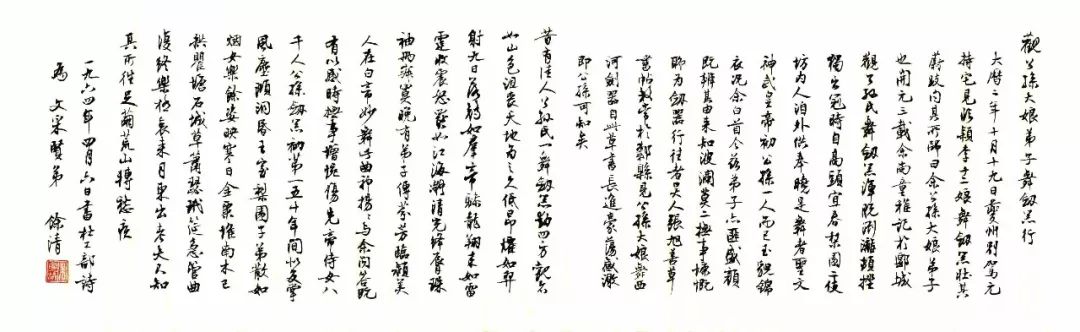 觀公孫大娘弟子舞劍器行
大曆二年十月十九日夔州別駕元
持宅見臨潁李十二娘舞劍器壯其
蔚跂問其所師曰余公孫大娘弟子
也開元三載余尚童穉記於郾城
觀公孫氏舞劍器渾脫瀏灕頓挫
獨出冠時自高頭宜春梨園二伎
坊內人洎外供奉曉是舞者聖文
神武皇帝初公孫一人而已玉貌錦
衣況余白首今茲弟子亦匪盛顏
既辨其由來知波瀾莫二撫事慷慨
聊為劍器行往者吳人張旭善草
書帖數常於鄴縣見公孫大娘舞西
河劍器自此草書長進豪蕩感激
即公孫可知矣
昔有佳人公孫氏一舞劍器動四方觀者
如山色沮喪天地為之久低昂㸌如羿
射九日落矯如羣帝驂龍翔來如雷
霆收震怒罷如江海凝清光絳唇珠
袖兩寂寞晚有弟子傳芬芳臨潁美
人在白帝妙舞此曲神揚揚與余問答既
有以感時撫事增惋傷先帝侍女八
千人公孫劍器初第一五十年間似反掌
風塵澒洞昏王室梨園子弟散如
烟女樂餘姿映寒日金粟堆南木已
拱瞿塘石城草蕭瑟玳筵急管曲
復終樂極哀來月東出老夫不知
其所往足繭荒山轉愁疾
一九六四年四月六日書杜工部詩
為文采賢弟 餘清